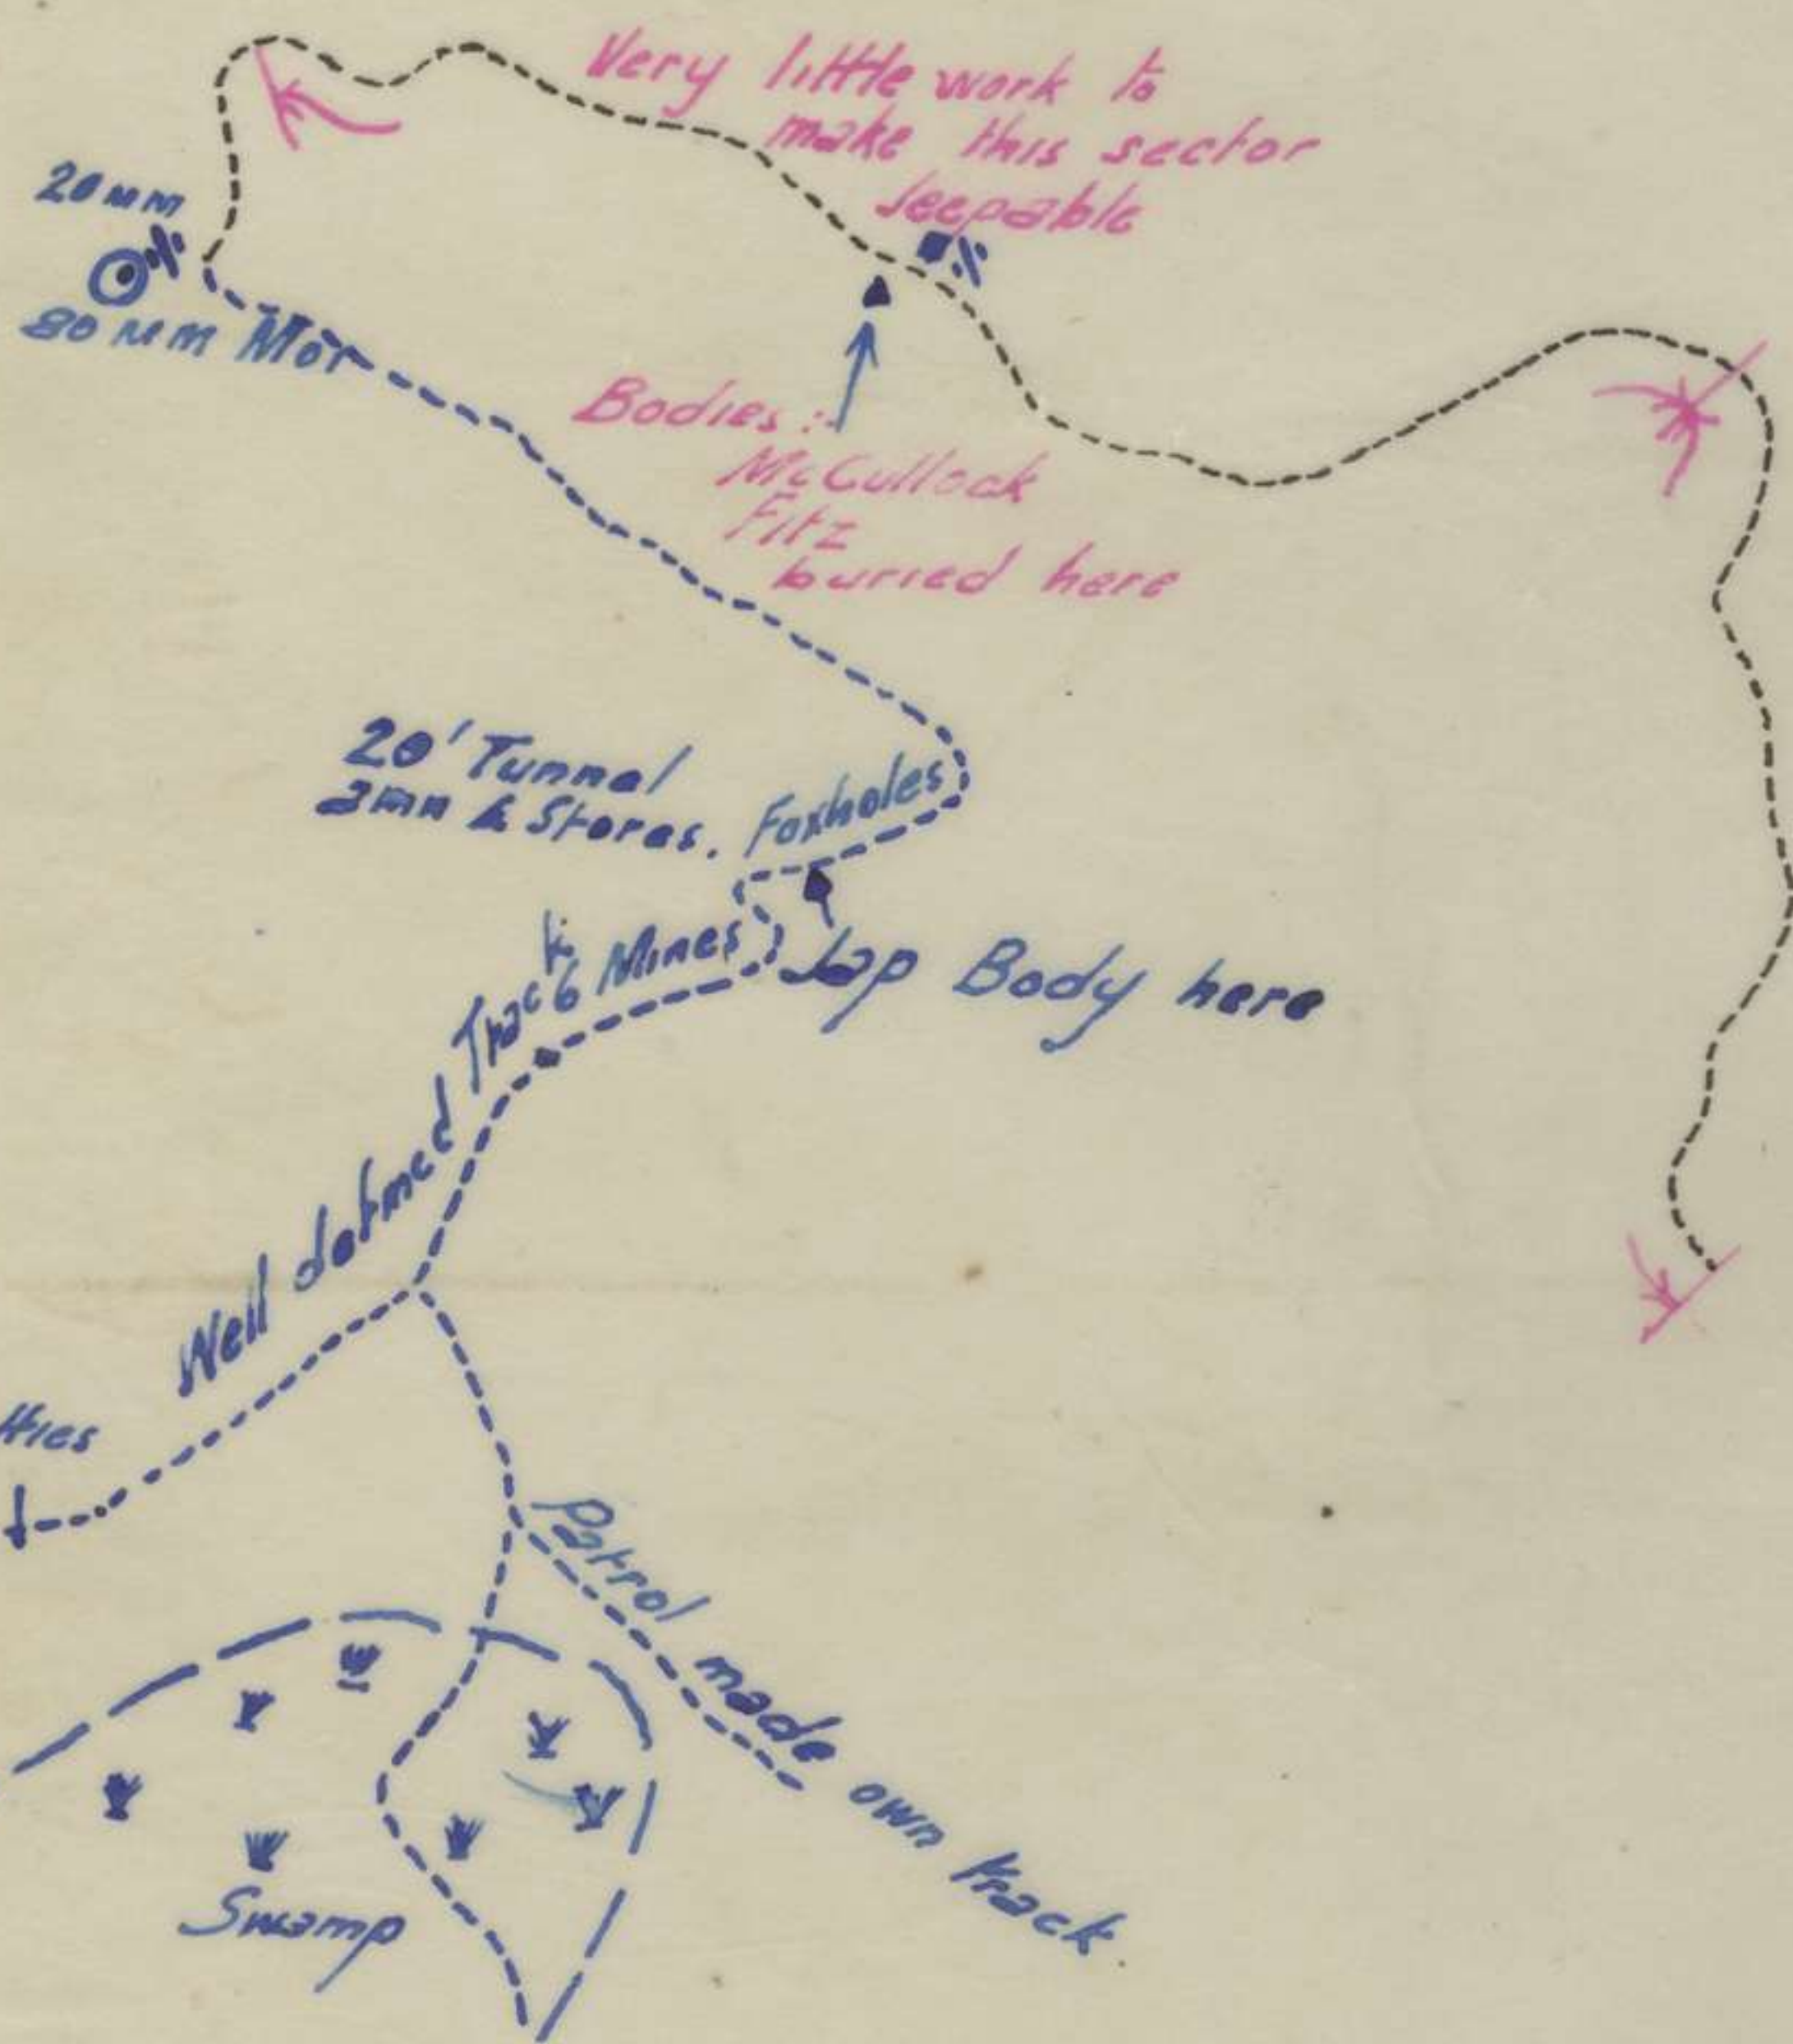 Very little work to
make this sector
Jeepable
20 mm
80 MM Mor
Bodies :-
McCullock
Fitz
buried here
20' Tunnel
amn & Stores.
Foxholes
6 Mines
Jap Body here
Well defined Track
Patrol made own track.
Swamp